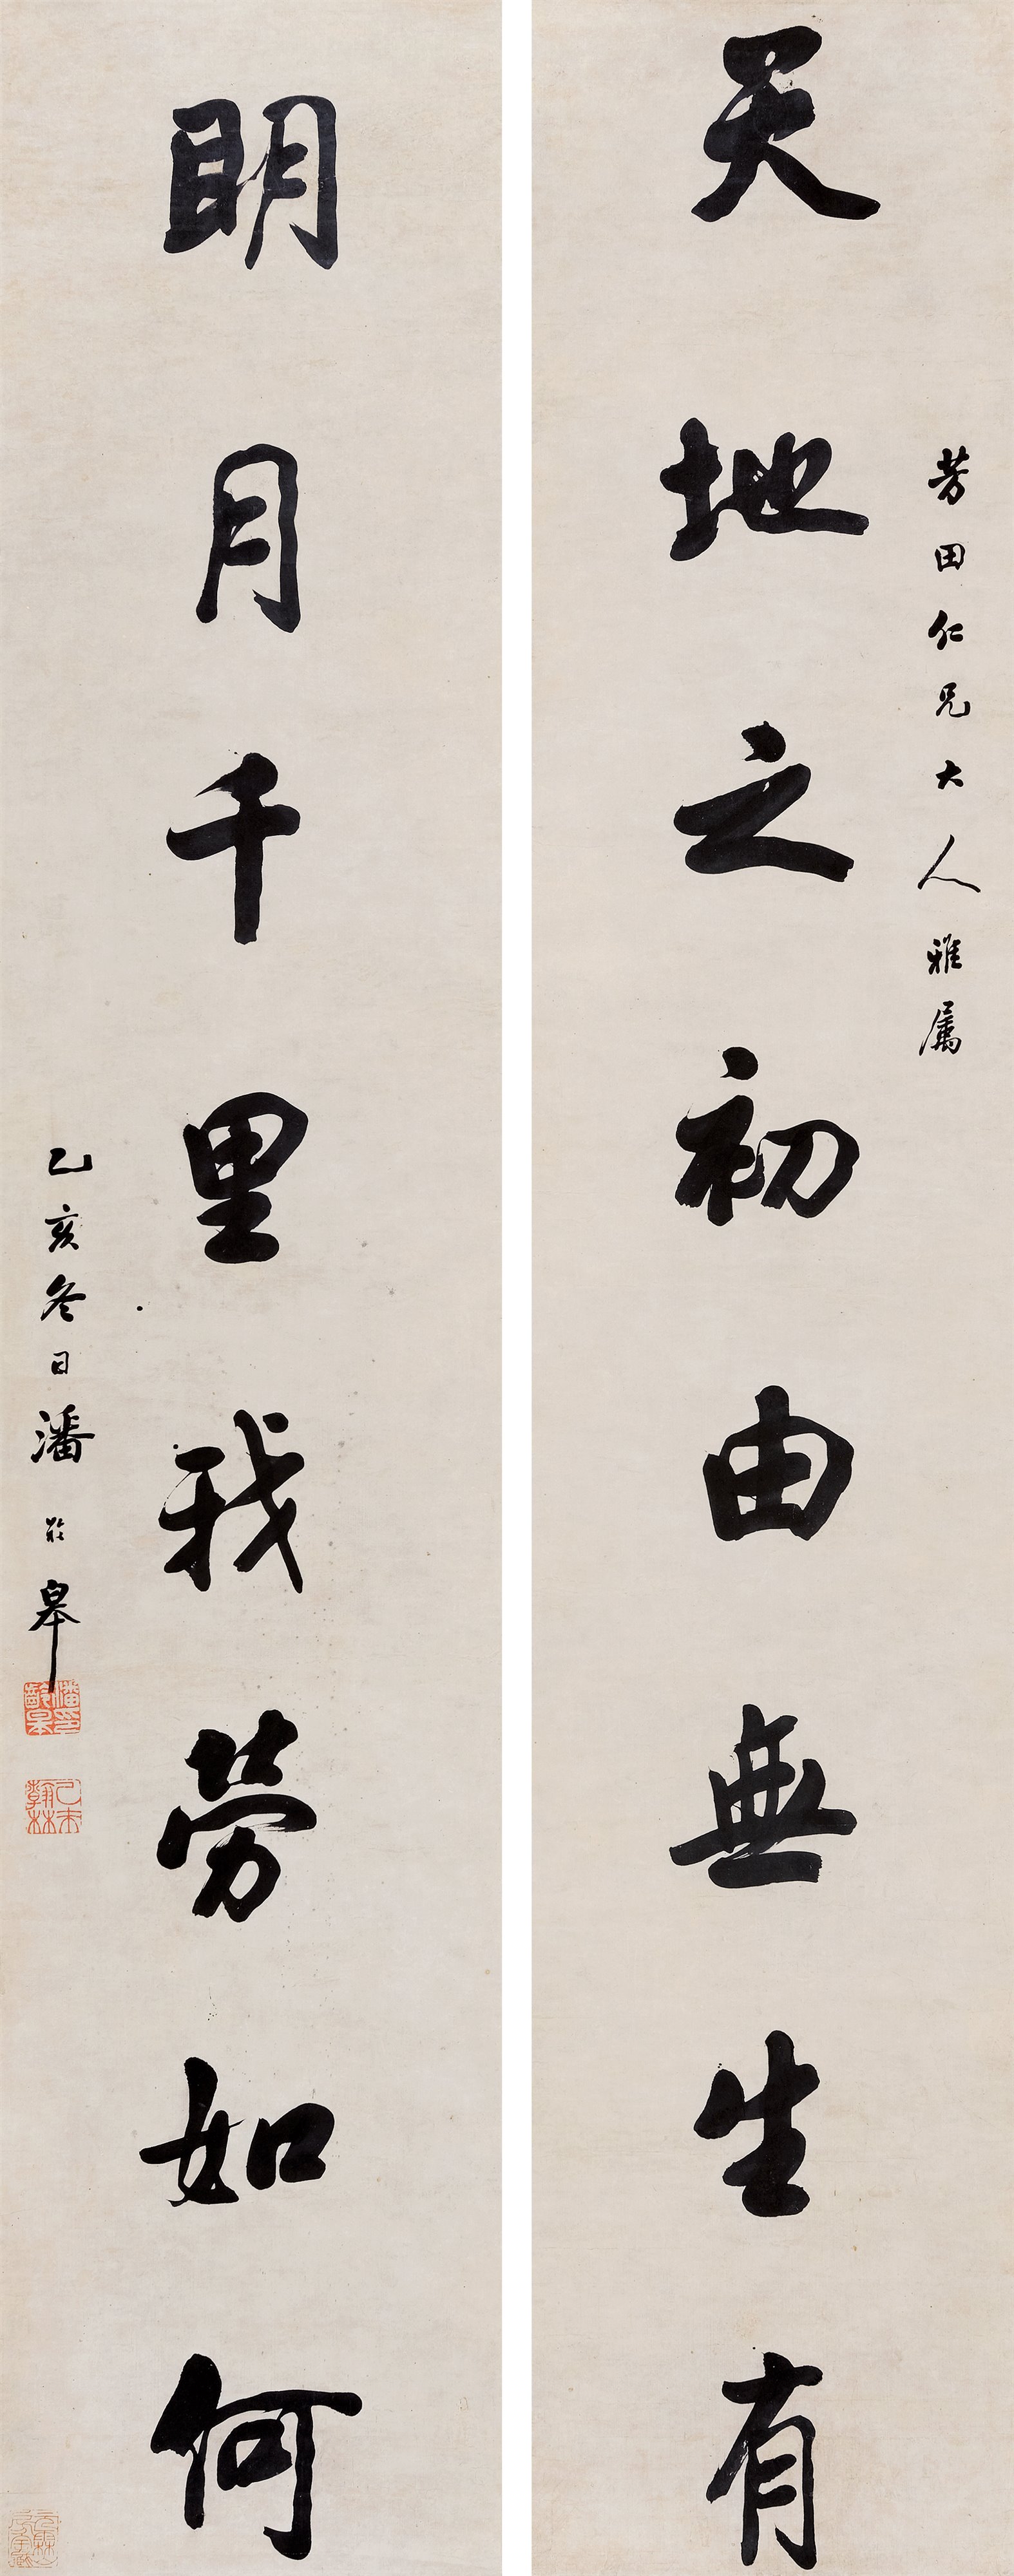 芳田仁兄大人雅屬
天地之初由無生有
明月千里我勞如何
乙亥冬日潘齡皋
潘印齡皋
乙未翰林